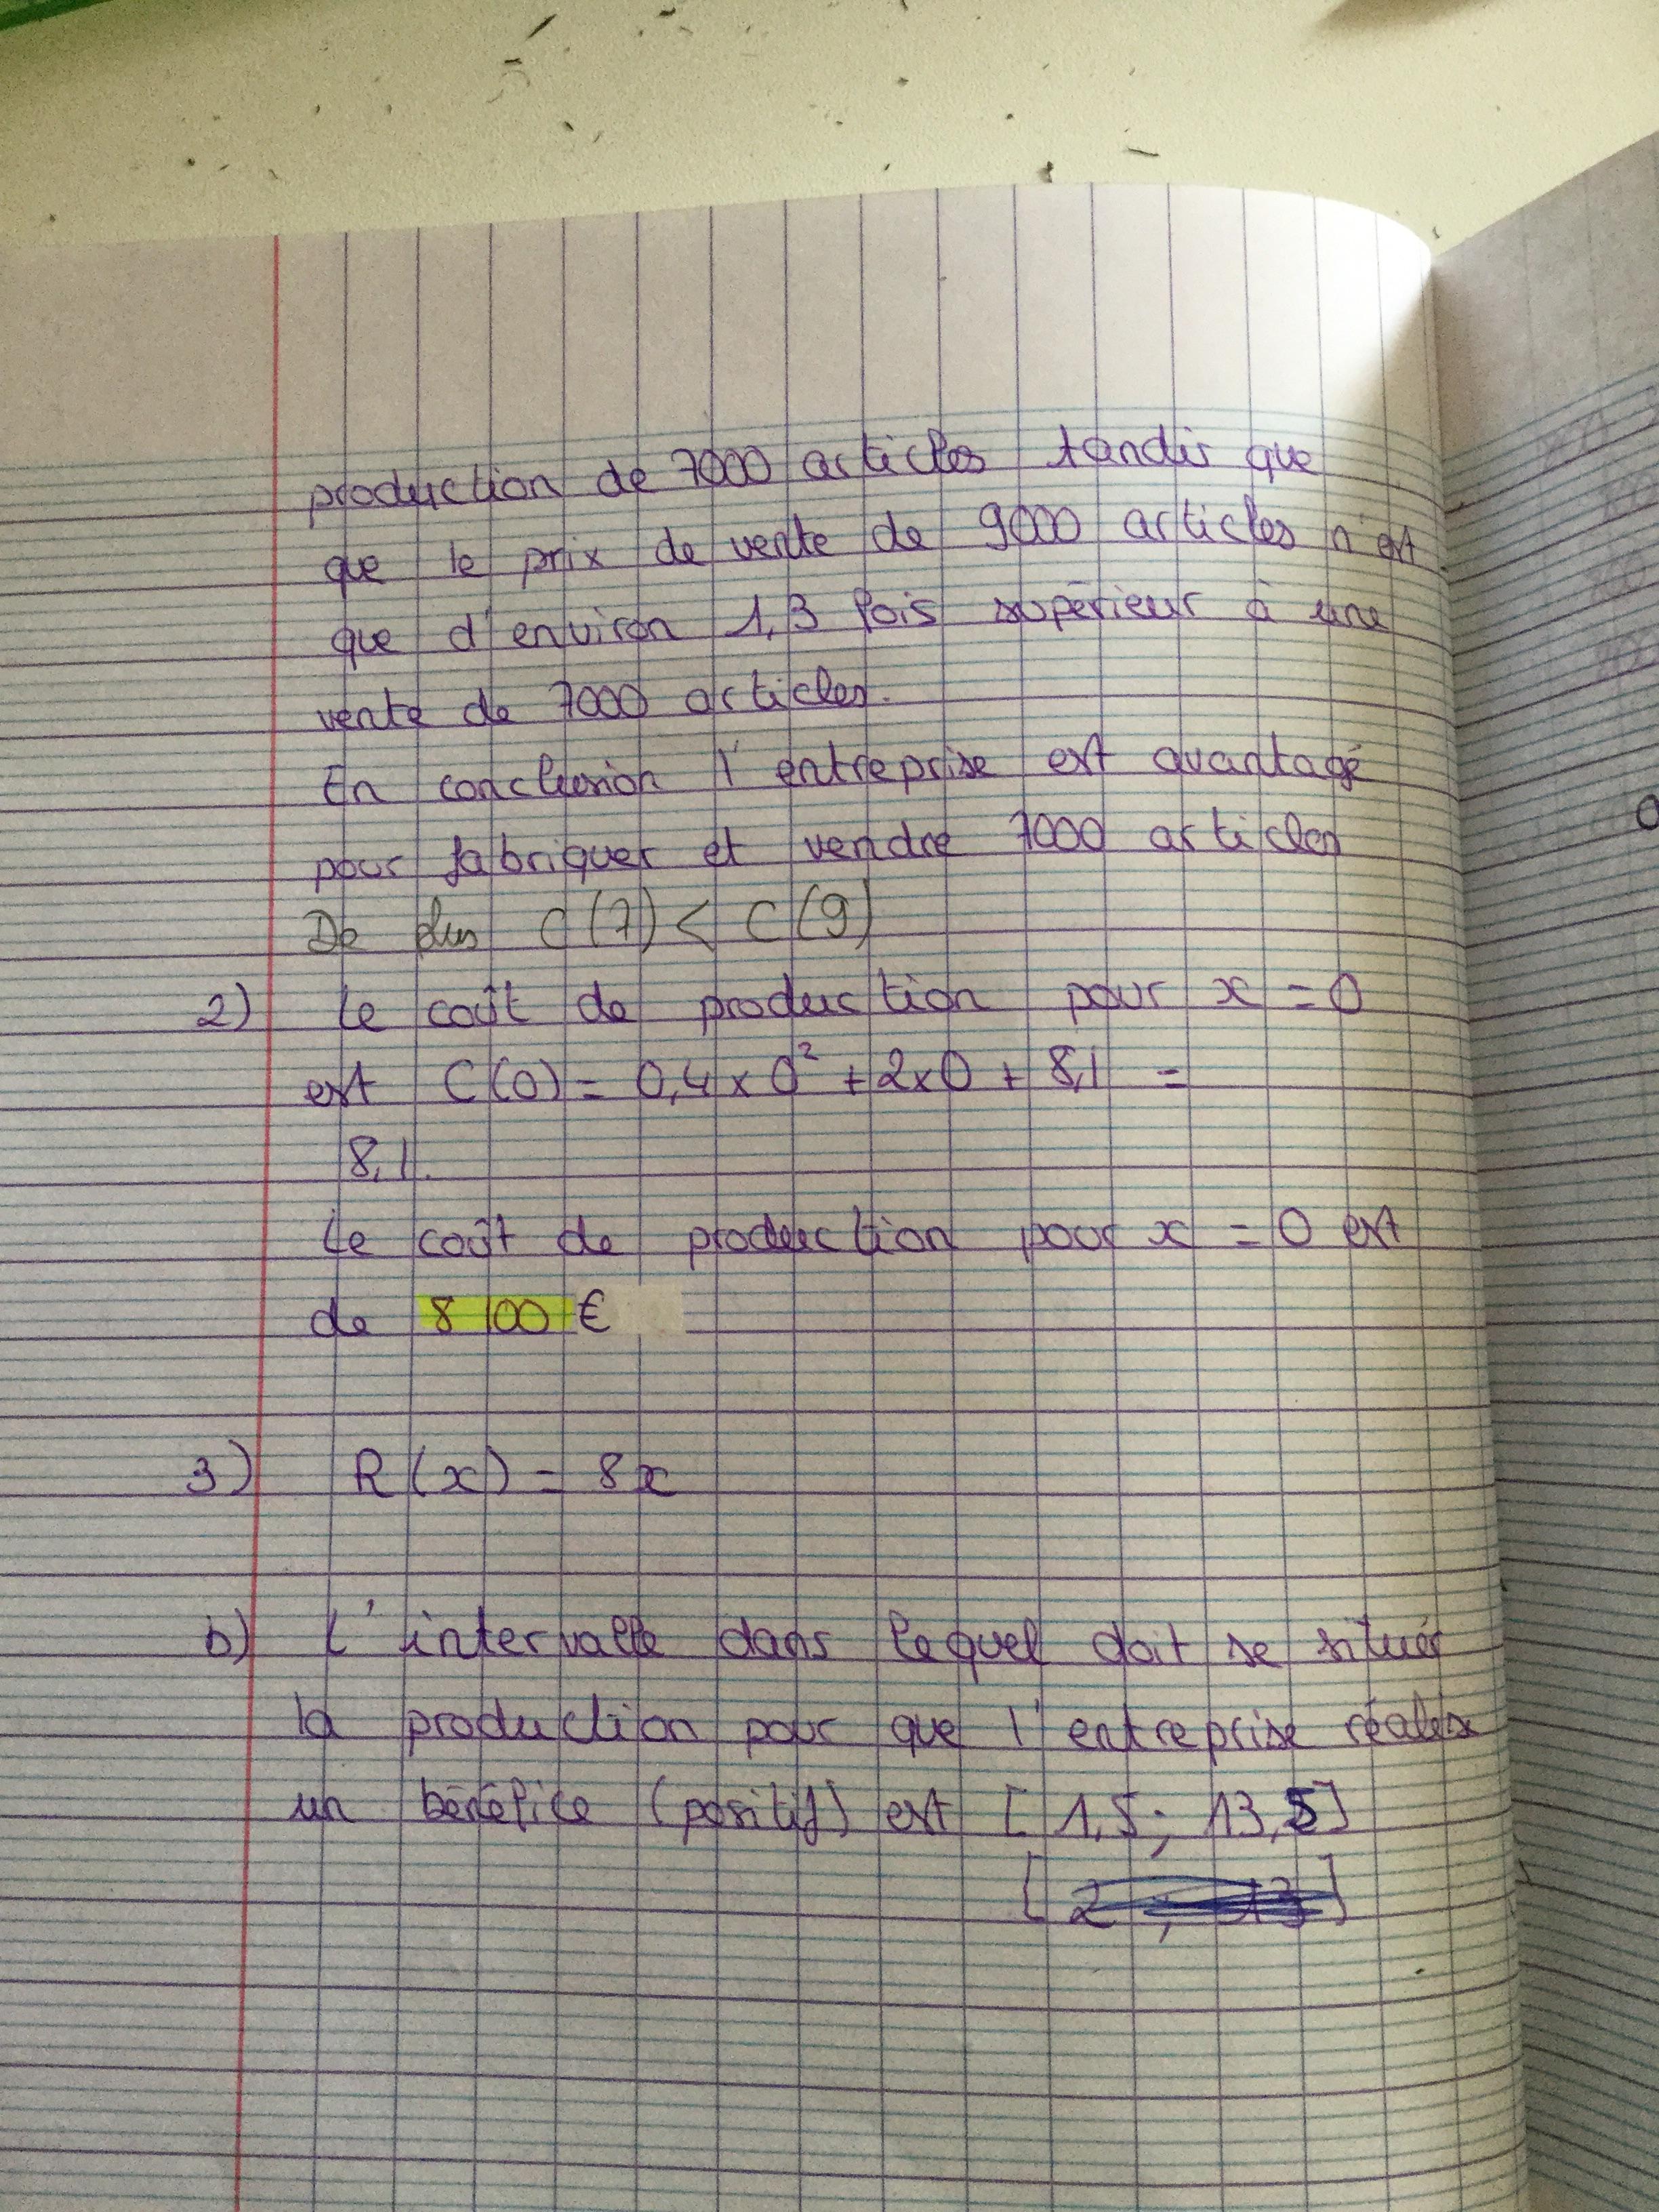 production de 7000 articles tandis que
que le prix de vente de 9000 articles n'est
que d'environ 1,3 fois supérieur à une
vente de 7000 articles.
En conclusion l'entreprise est avantagé
pour fabriquer et vendre 7000 articles
De plus C(7) < C(9)
2) Le coût de production pour x = 0
est C(0) = 0,4 x 0² + 2x0 + 8,1 =
8,1.
Le coût de production pour x = 0 est
de 8 100 €
3) R(x) = 8x
b) L'intervalle dans lequel doit se situer
la production pour que l'entreprise réalise
un bénéfice (positif) est [1,5; 13,5]
[2 ; 13]